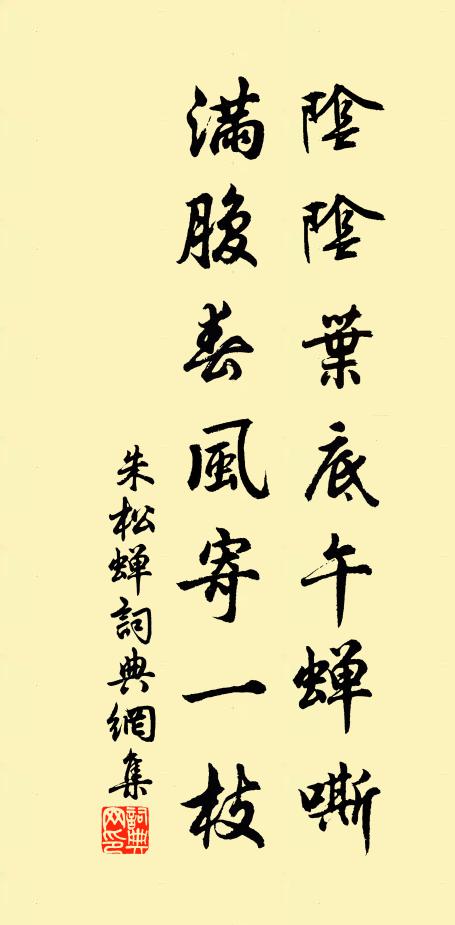 陰陰葉底午蝉嘶
滿腹春風寄一枝
朱松蝉詞典網集
詞典網印